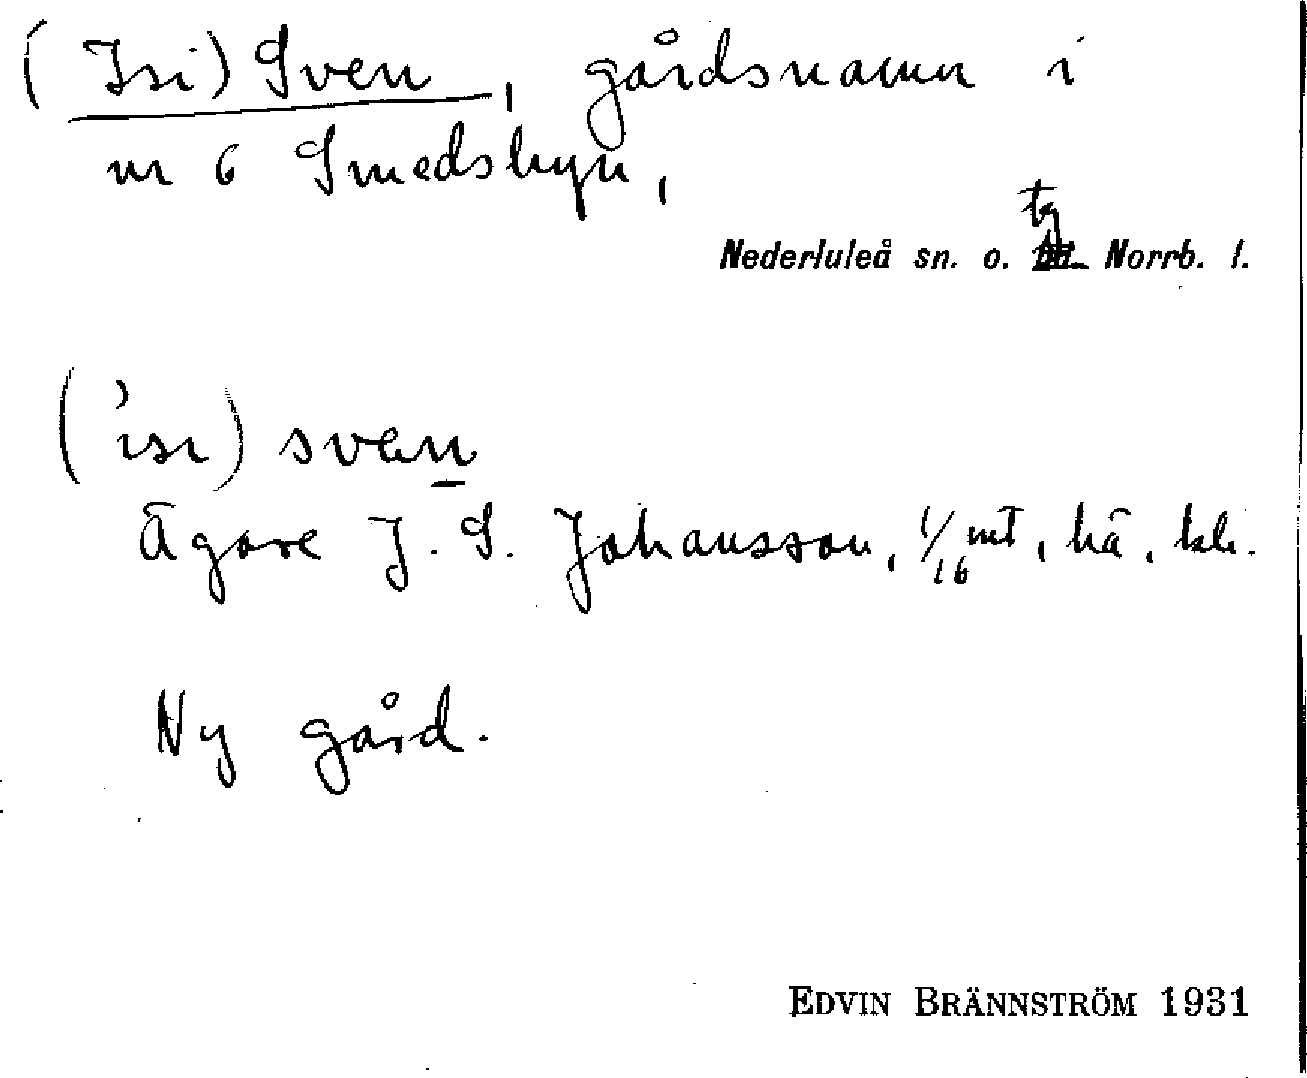 (Isi) Sven, gårdsnamn i
nr 6 Smedsbyn,
tg
Nederluleå sn. o. Norrb. l.
('isi) sven
Ägare J. S. Johansson, 1/16 mt, hä, kli.
Ny gård.
EDVIN BRÄNNSTRÖM 1931